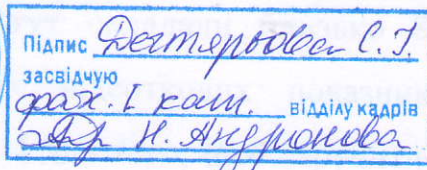 Підпис Дегтярьова С. І.
засвідчую
фах. I кат. відділу кадрів
Н. Андронова